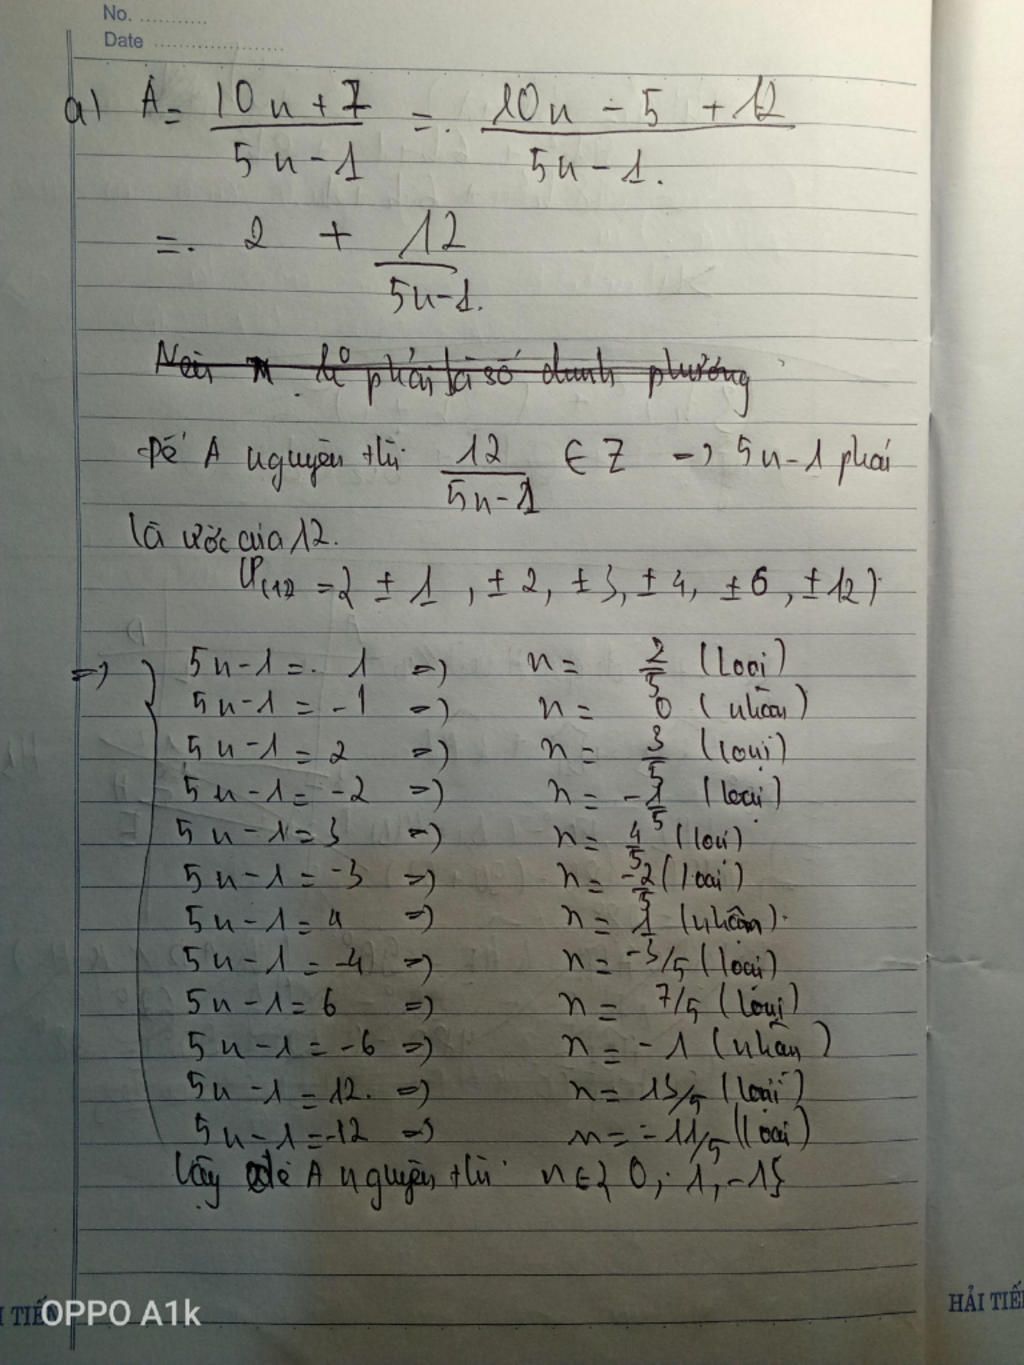 No. ...........
Date ......................
a) A = (10n + 7)/(5n - 1) = (10n - 5 + 12)/(5n - 1).
= 2 + 12/(5n - 1).
phải là số
Để A nguyên thì 12/(5n - 1) ∈ Z => 5n - 1 phải
là ước của 12.
Ư(12) = { ± 1, ± 2, ± 3, ± 4, ± 6, ± 12 }
=> { 5n - 1 = 1 => n = 2/5 (loại)
5n - 1 = -1 => n = 0 (nhận)
5n - 1 = 2 => n = 3/5 (loại)
5n - 1 = -2 => n = -1/5 (loại)
5n - 1 = 3 => n = 4/5 (loại)
5n - 1 = -3 => n = -2/5 (loại)
5n - 1 = 4 => n = 1 (nhận).
5n - 1 = -4 => n = -3/5 (loại)
5n - 1 = 6 => n = 7/5 (loại)
5n - 1 = -6 => n = -1 (nhận)
5n - 1 = 12. => n = 13/5 (loại)
5n - 1 = -12 => n = -11/5 (loại)
Vậy để A nguyên thì n ∈ { 0; 1, -1}
OPPO A1k
HẢI TIẾ